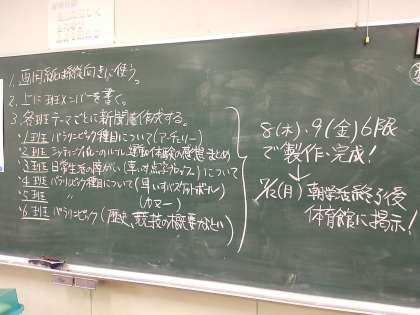 1. 画用紙は縦向きに使う。
2. 上に班メンバーを書く。
3. 各班テーマごとに新聞を作成する。
・1班 パラリンピック種目について(アーチェリー)
・2班 シッティングバレーのルール、運動体験の感想・まとめ
・3班 日常生活の障がい(車いす、点字ブロック)について
・4班 パラリンピック種目について(車いすバスケットボール)
・5班 〃 (カヌー)
・6班 パラリンピック(歴史、競技の概要など)
8(木)・9(金)6限
で製作・完成!
↓
7/12(月) 朝学活終了後
体育館に掲示!